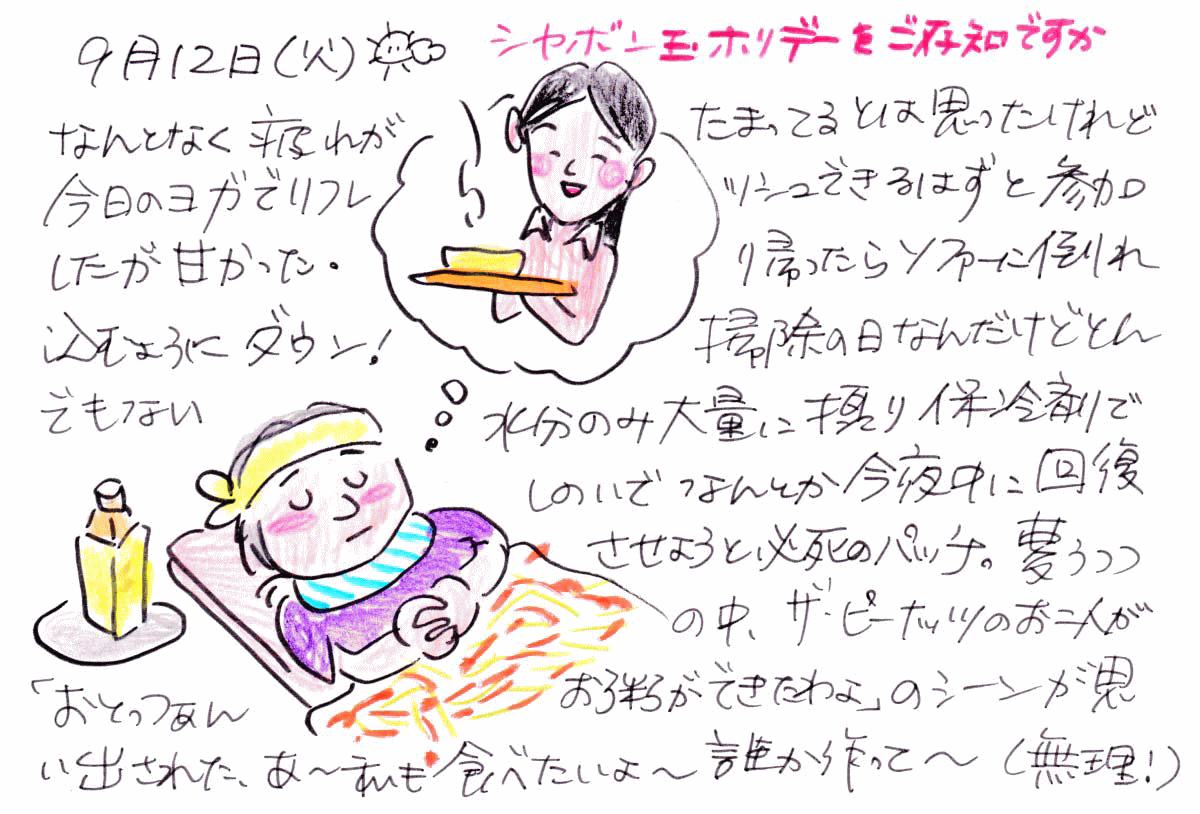 9月12日(火)
シャボン玉ホリデーをご存知ですか
なんとなく疲れが たまってるとは思ったけれど
今日のヨガでリフレ ッシュできるはずと参加
したが甘かった. り帰ったらソファーに倒れ
込むようにダウン! 掃除の日なんだけどとん
でもない 水分のみ大量に摂り保冷剤で
しのいでなんとか今夜中に回復
させようと必死のパッチ。夢うつつ
の中、ザ・ピーナッツのお二人が
「おとっつぁん お粥ができたわよ」のシーンが思
い出された、あ〜私も食べたいよ〜誰か作って〜(無理!)